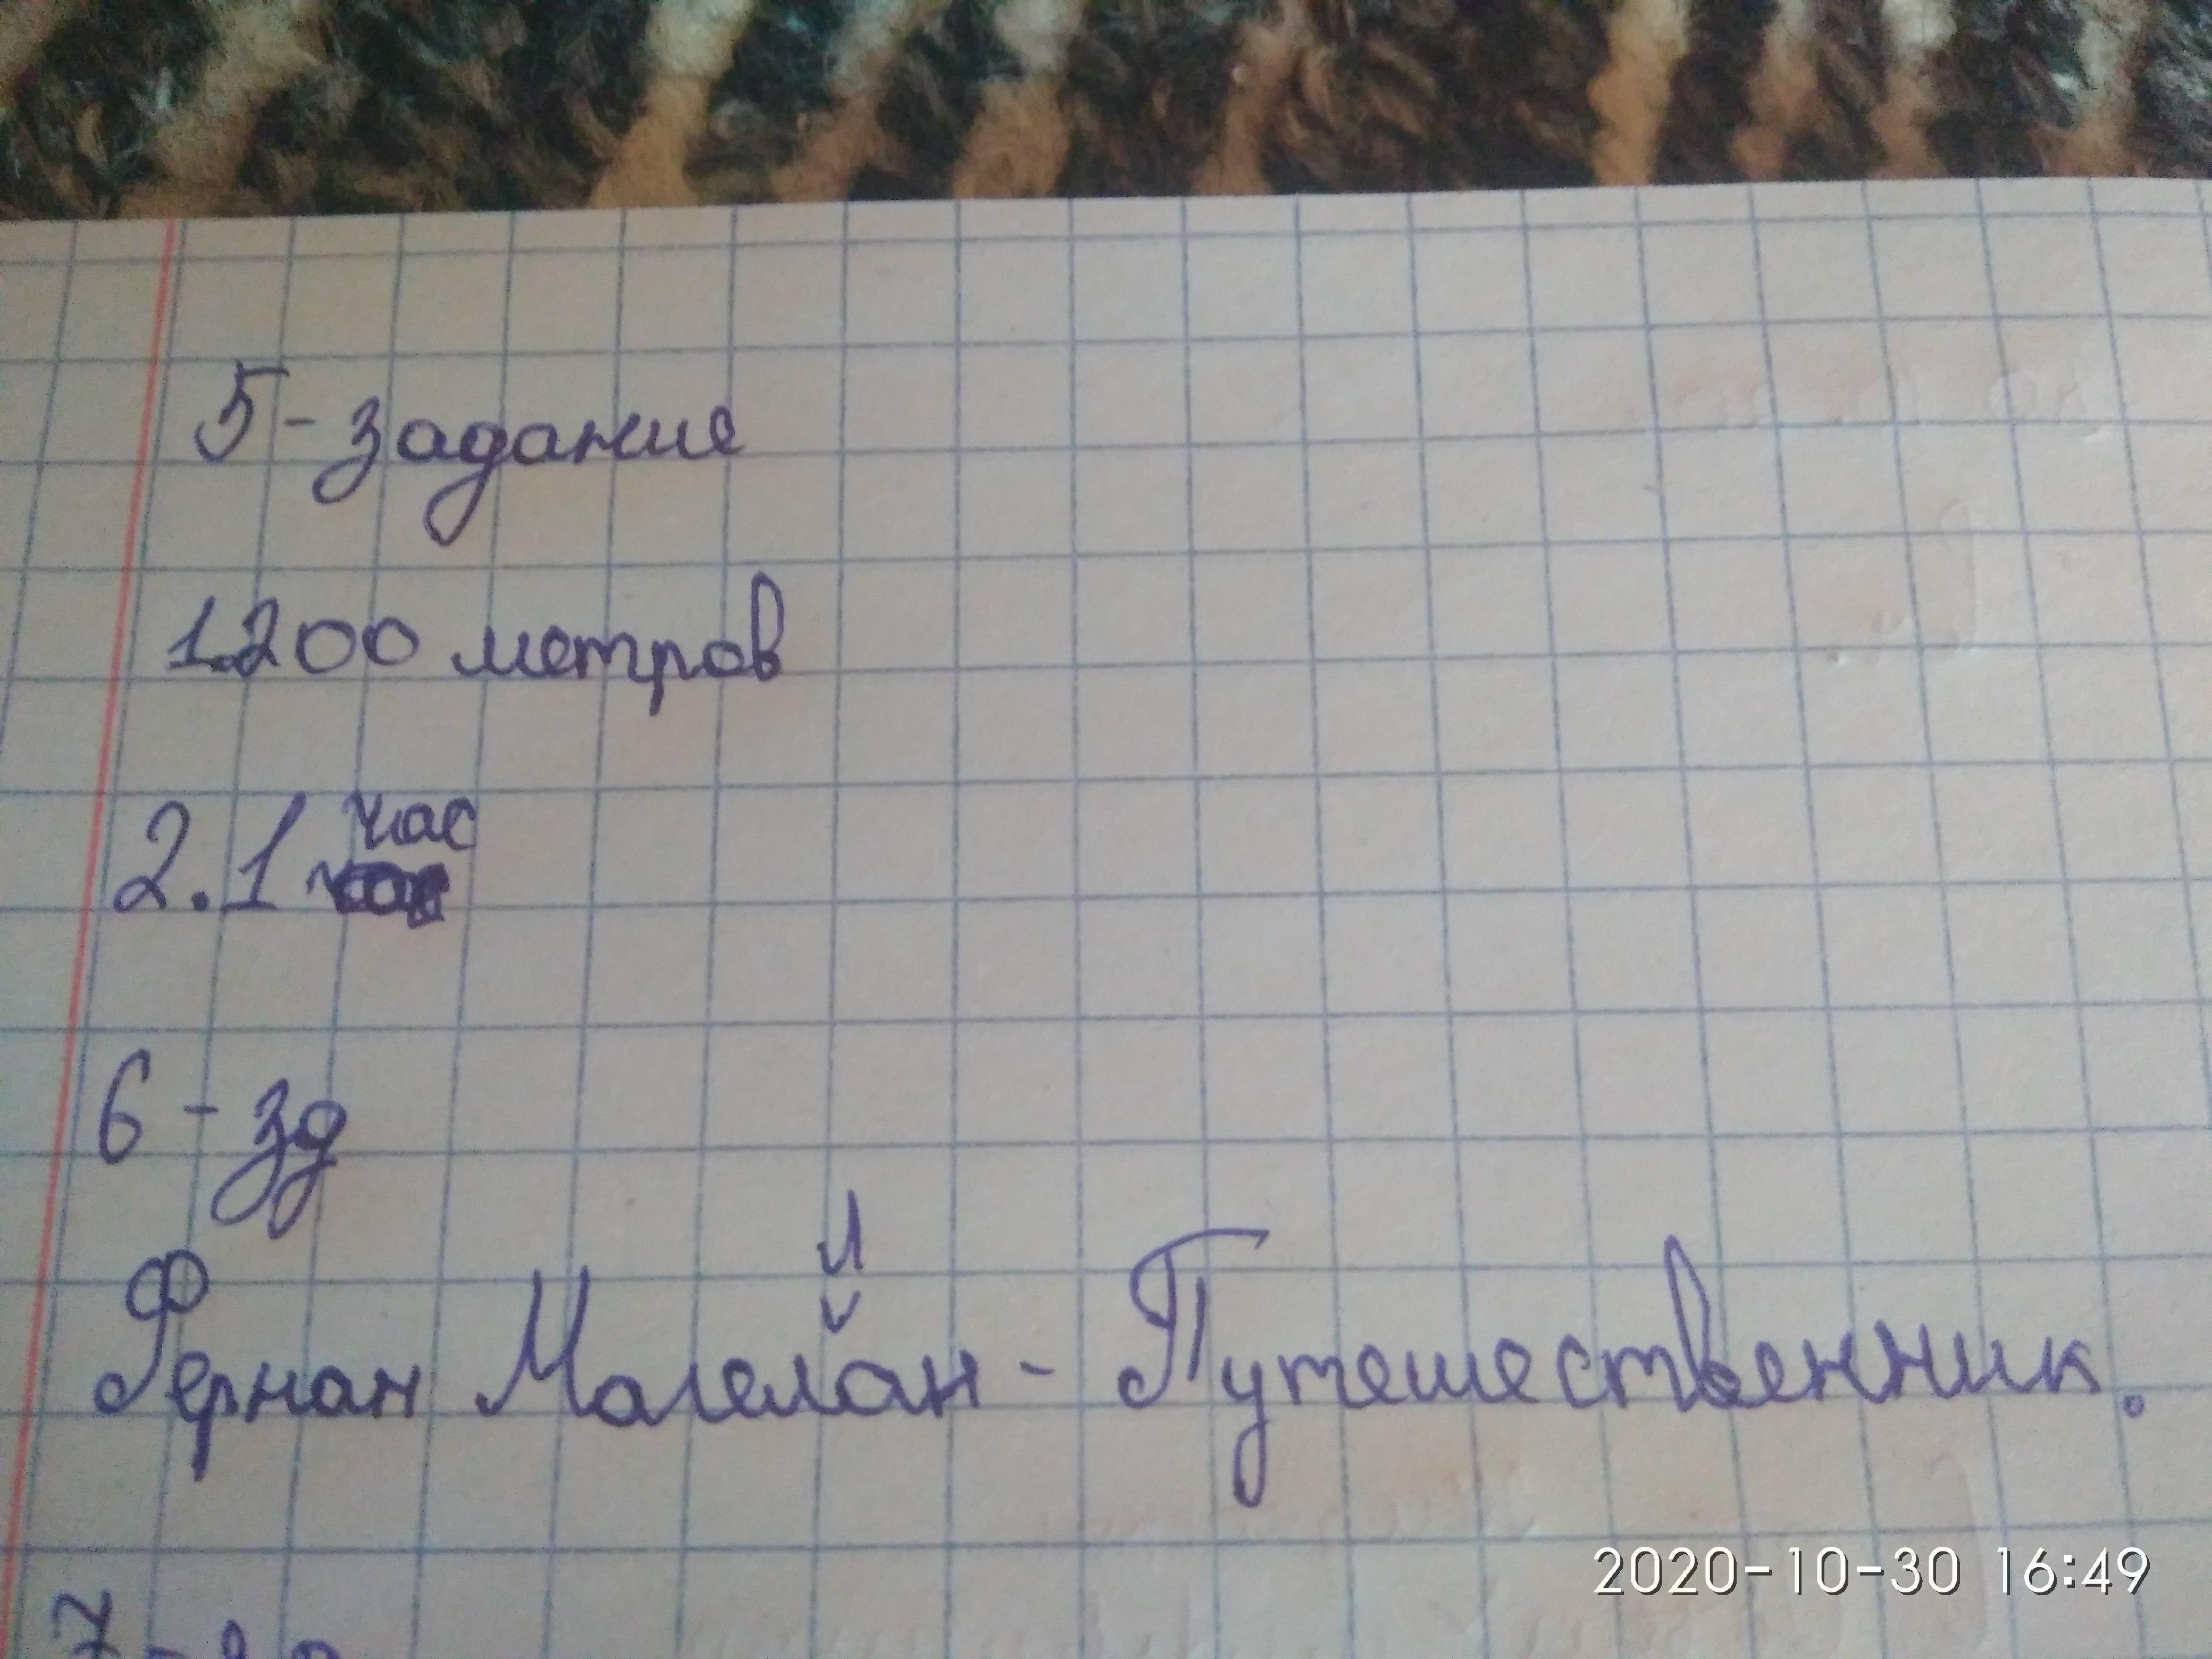 5-задание
1.200 метров
2.1 час
6-зд
Фернан Магеллан - Путешественник.
2020-10-30 16:49
7-